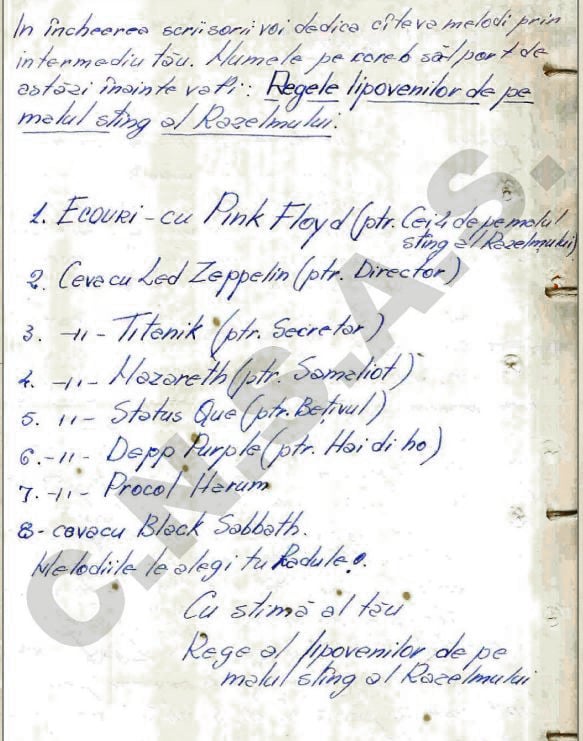 In încheerea scriisorii voi dedica cîteva melodi prin
intermediu tău. Numele pe careb săl port de
astăzi înainte va fi: Regele lipovenilor de pe
malul sting al Razelmului.
1. Ecouri - cu Pink Floyd (ptr. Cei 4 de pe malul
sting al Razelmului)
2. Ceva cu Led Zeppelin (ptr. Director)
3. -11- Titanik (ptr. Secretar)
4. -11- Nazareth (ptr. Samaliot)
5. 11- Status Que (ptr. Bețivul)
6. -11- Depp Purple (ptr. Hai di ho)
7. -11- Procol Harum
8 - cevacu Black Sabbath.
Melodiile le alegi tu Radule.
Cu stimă al tău
Rege al lipovenilor de pe
malul sting al Razelmului
C.N.S.A.S.